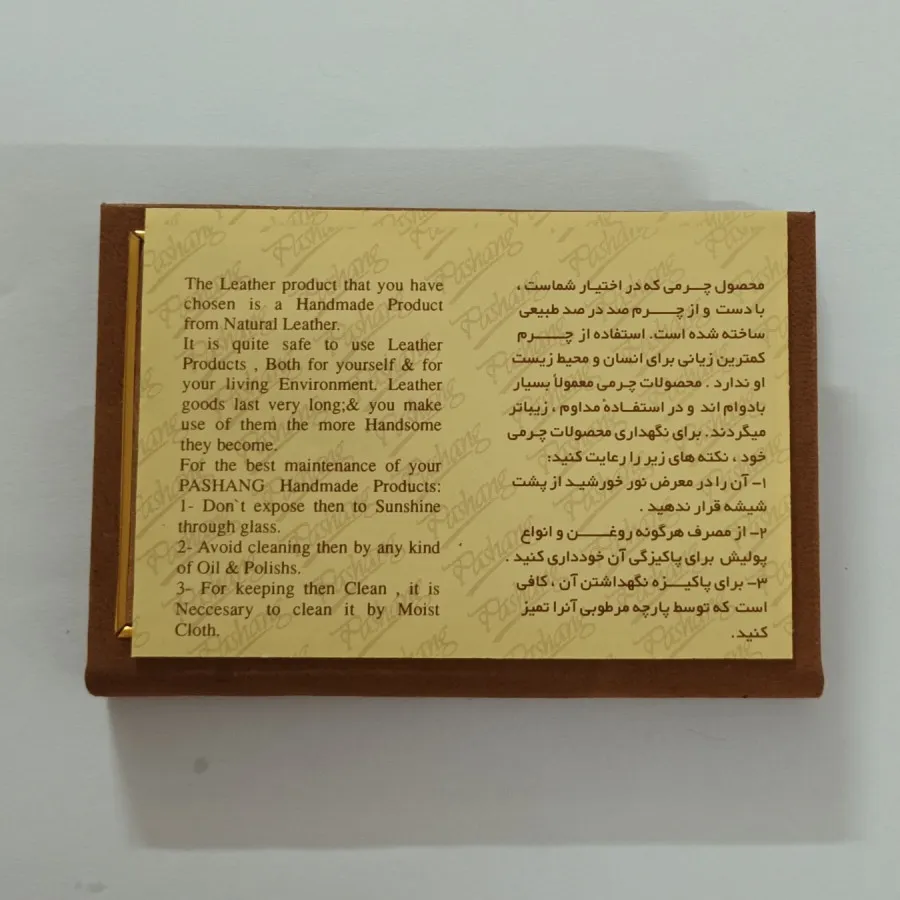 The Leather product that you have
chosen is a Handmade Product
from Natural Leather.
It is quite safe to use Leather
Products , Both for yourself & for
your living Environment. Leather
goods last very long;& you make
use of them the more Handsome
they become.
For the best maintenance of your
PASHANG Handmade Products:
1- Don`t expose then to Sunshine
through glass.
2- Avoid cleaning then by any kind
of Oil & Polishs.
3- For keeping then Clean , it is
Neccesary to clean it by Moist
Cloth.
محصول چـرمی که در اختیار شماست ،
با دست و از چـــرم صد در صد طبیعی
ساخته شده است. استفاده از چـــرم
کمترین زیانی برای انسان و محیط زیست
او ندارد . محصولات چرمی معمولاً بسیار
بادوام اند و در استفـادهٔ مداوم ، زیباتر
میگردند. برای نگهداری محصولات چـرمی
خود ، نکته های زیر را رعایت کنید:
۱- آن را در معرض نور خورشید از پشت
شیشه قرار ندهید .
۲- از مصرف هرگونه روغـــن و انواع
پولیش برای پاکیزگی آن خودداری کنید .
۳- برای پاکیـزه نگهداشتن آن ، کافی
است که توسط پارچه مرطوبی آنرا تمیز
کنید.
Pashang